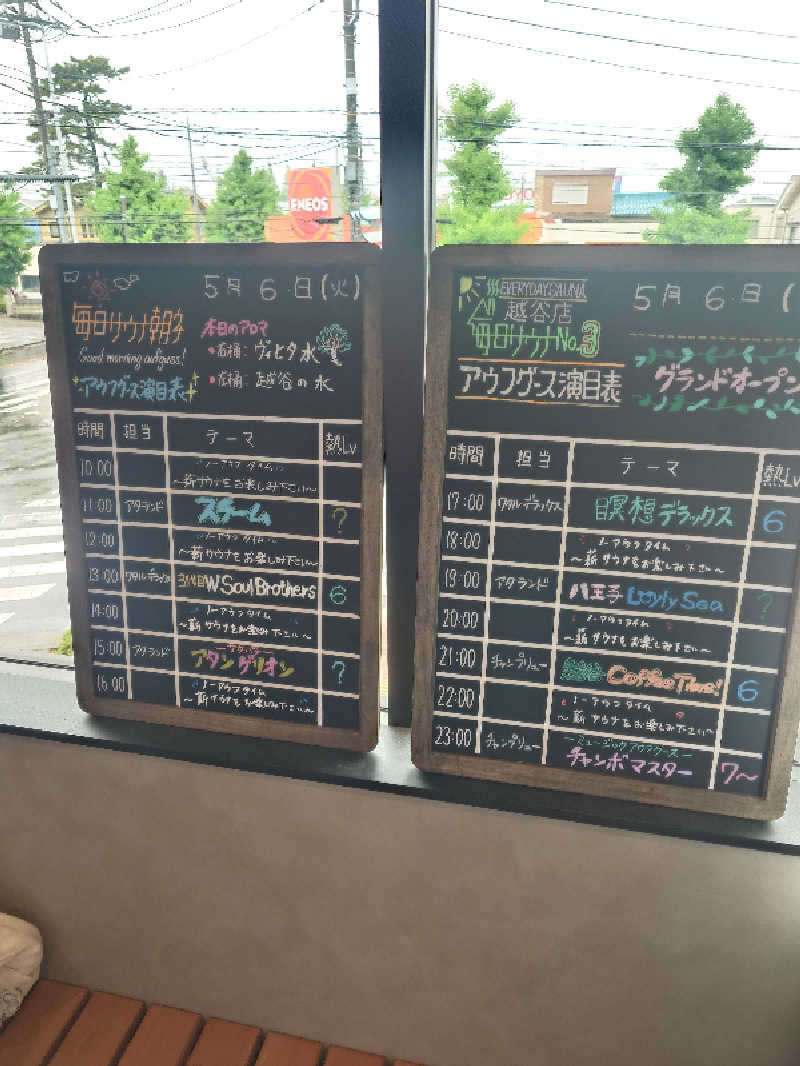 ENEOS
5月 6.日(火)
毎日サウナ朝
Good morning aufguss!
アウフグース演目表
本日のアロマ
右桶: ヴィヒタ水
左桶: 越谷の水
時間 担当 テーマ 熱Lv
10:00 ノーアウフタイム
～薪サウナをお楽しみ下さい～
11:00 アタランド スチーム ?
12:00 ノーアウフタイム
～薪サウナをお楽しみ下さい～
13:00 ワタルデラックス 3代目W.Soul Brothers 6
14:00 ノーアウフタイム
～薪サウナをお楽しみ下さい～
15:00 アタランド アタンゲリオン ?
16:00 ノーアウフタイム
～薪サウナをお楽しみ下さい～
5月 6.日(
EVERYDAY SAUNA
越谷店
毎日サウナNo.3
アウフグース演目表
グランドオープン
時間 担当 テーマ 熱Lv
17:00 ワタルデラックス 瞑想デラックス 6
18:00 ノーアウフタイム
～薪サウナをお楽しみ下さい～
19:00 アタランド 八王子 Löyly Sea ?
20:00 ノーアウフタイム
～薪サウナをお楽しみ下さい～
21:00 チャンプリュー Coffee Time! 6
22:00 ノーアウフタイム
～薪サウナをお楽しみ下さい～
23:00 チャンプリュー ーミュージックアウフグースー
チャンボマスター 7～